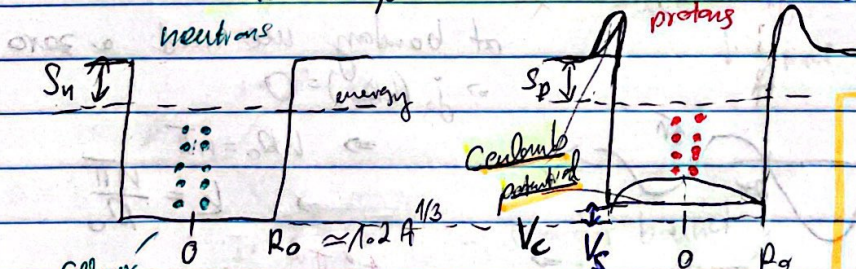 neutrons
protons
Sn
Sp
energy
Coulomb
potential
0
R0 ≃ 1.2 A^1/3
Vc
0
R0